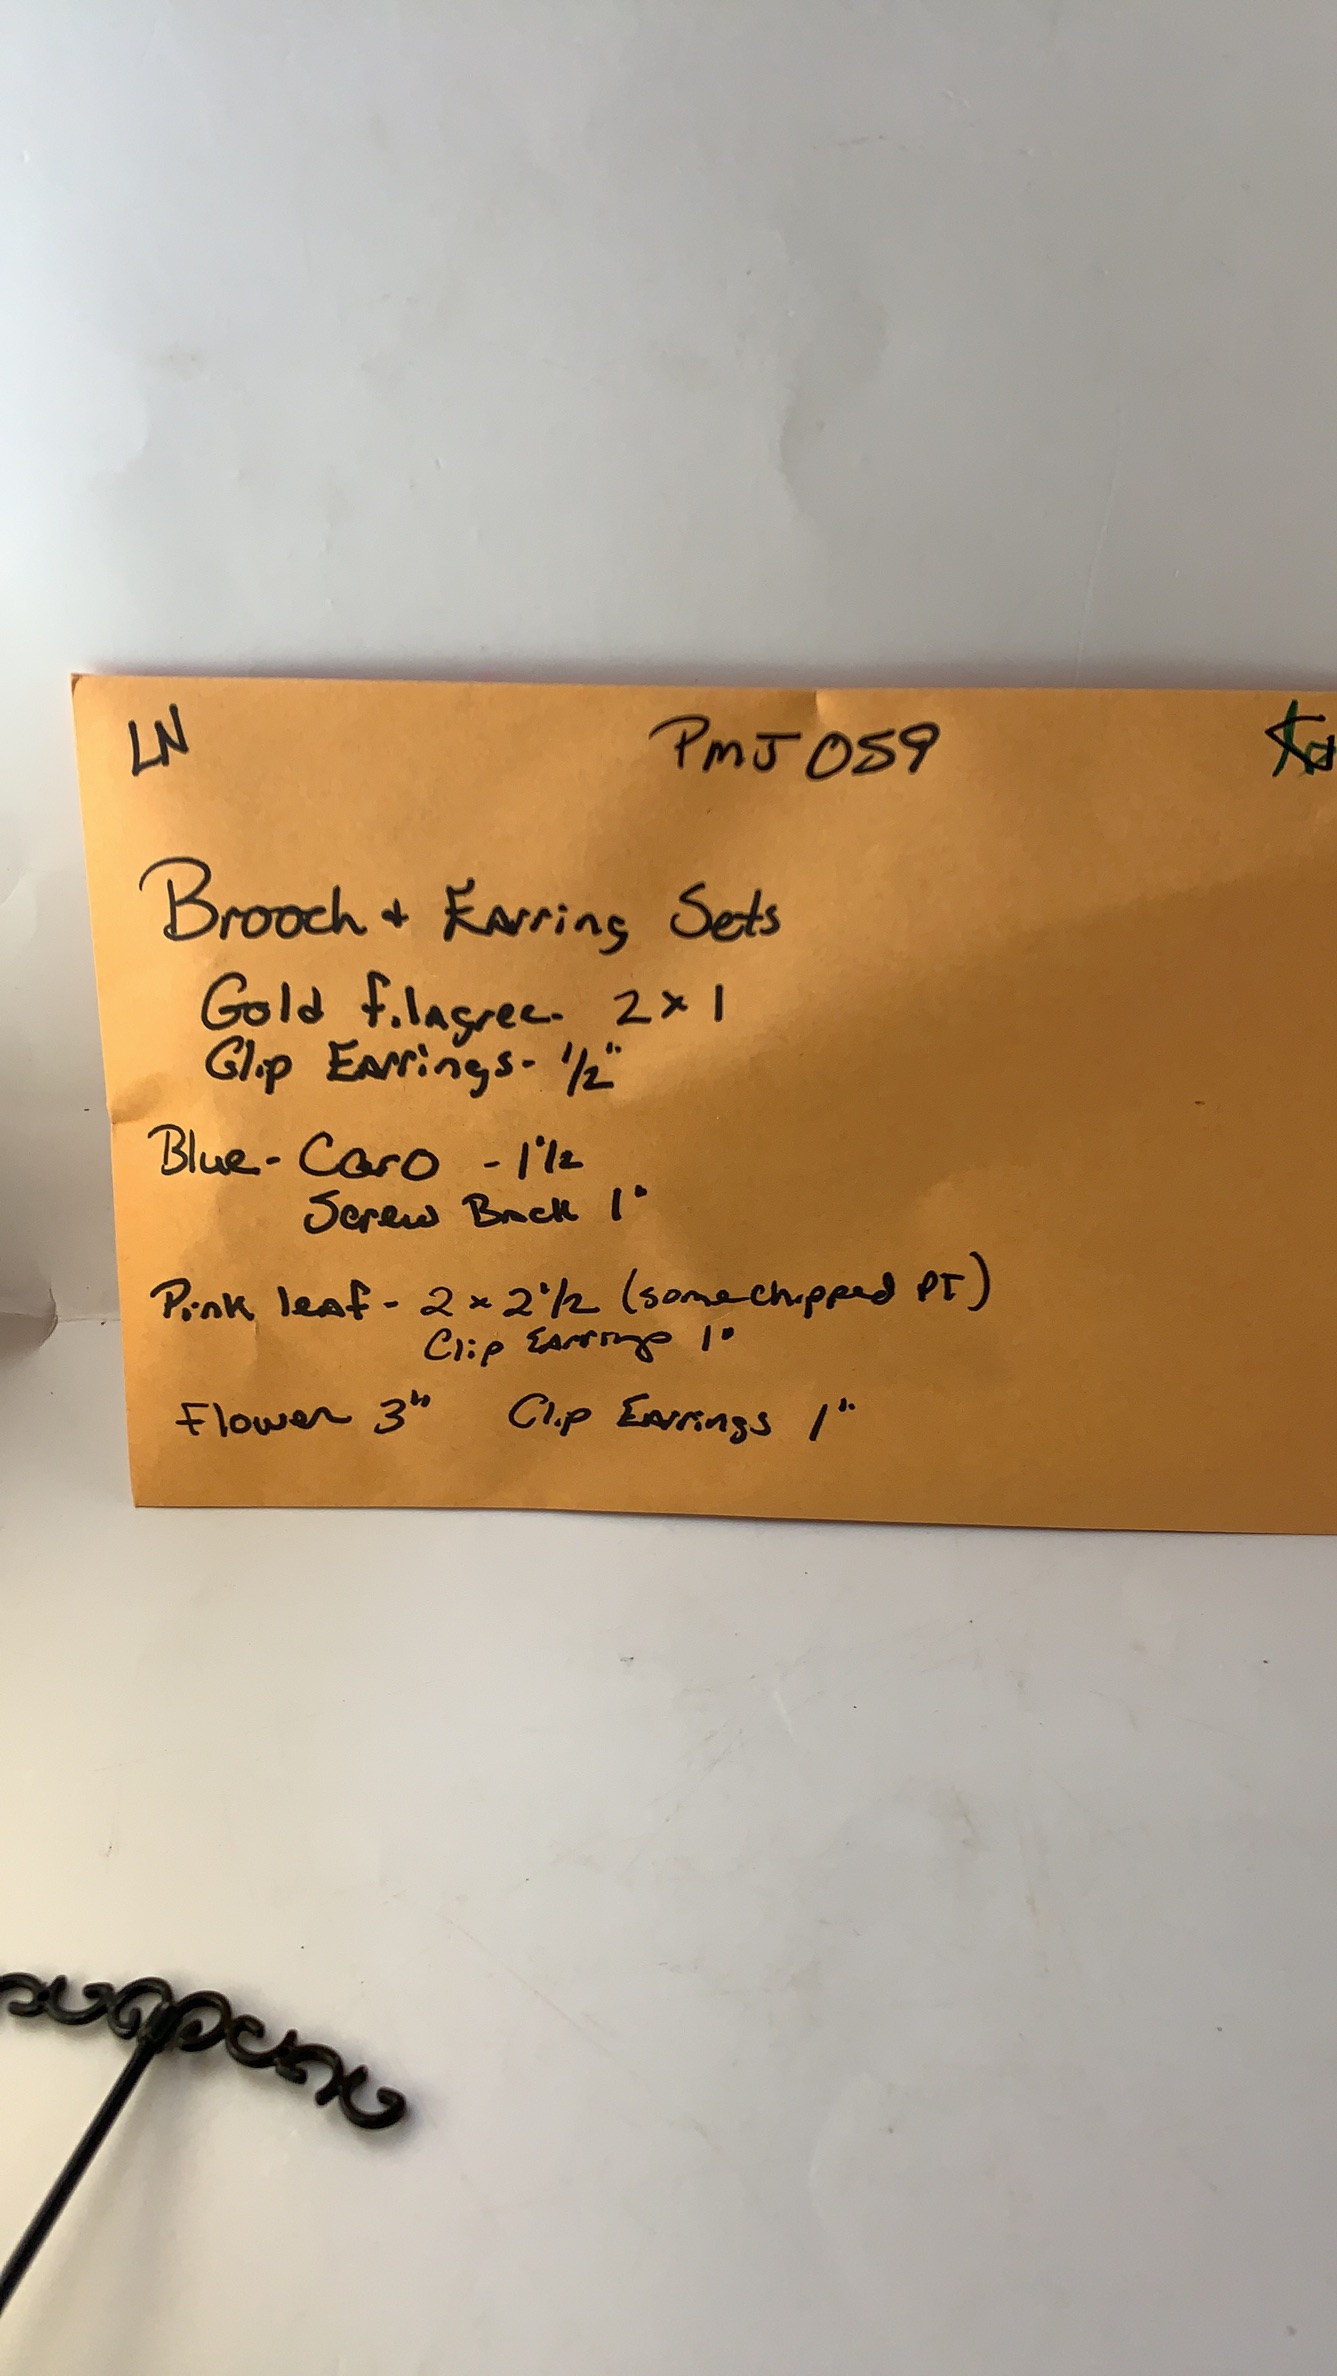 LN PMJ 059
Brooch + Earring Sets
Gold filagree - 2 x 1
Clip Earrings - 1/2"
Blue - Caro - 1 1/2
Screw Back 1"
Pink leaf - 2 x 2 1/2 (some chipped PT)
Clip Earrings 1"
Flower 3" Clip Earrings 1"